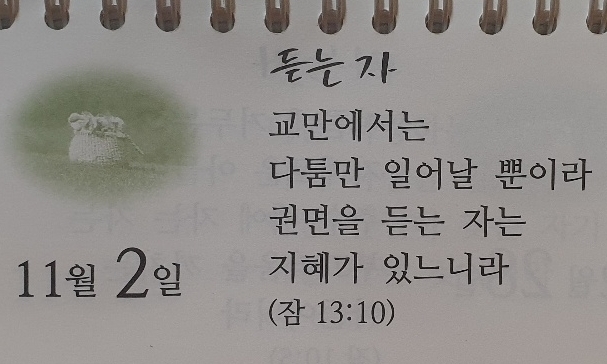 듣는 자
교만에서는
다툼만 일어날 뿐이라
권면을 듣는 자는
지혜가 있느니라
(잠 13:10)
11월 2일